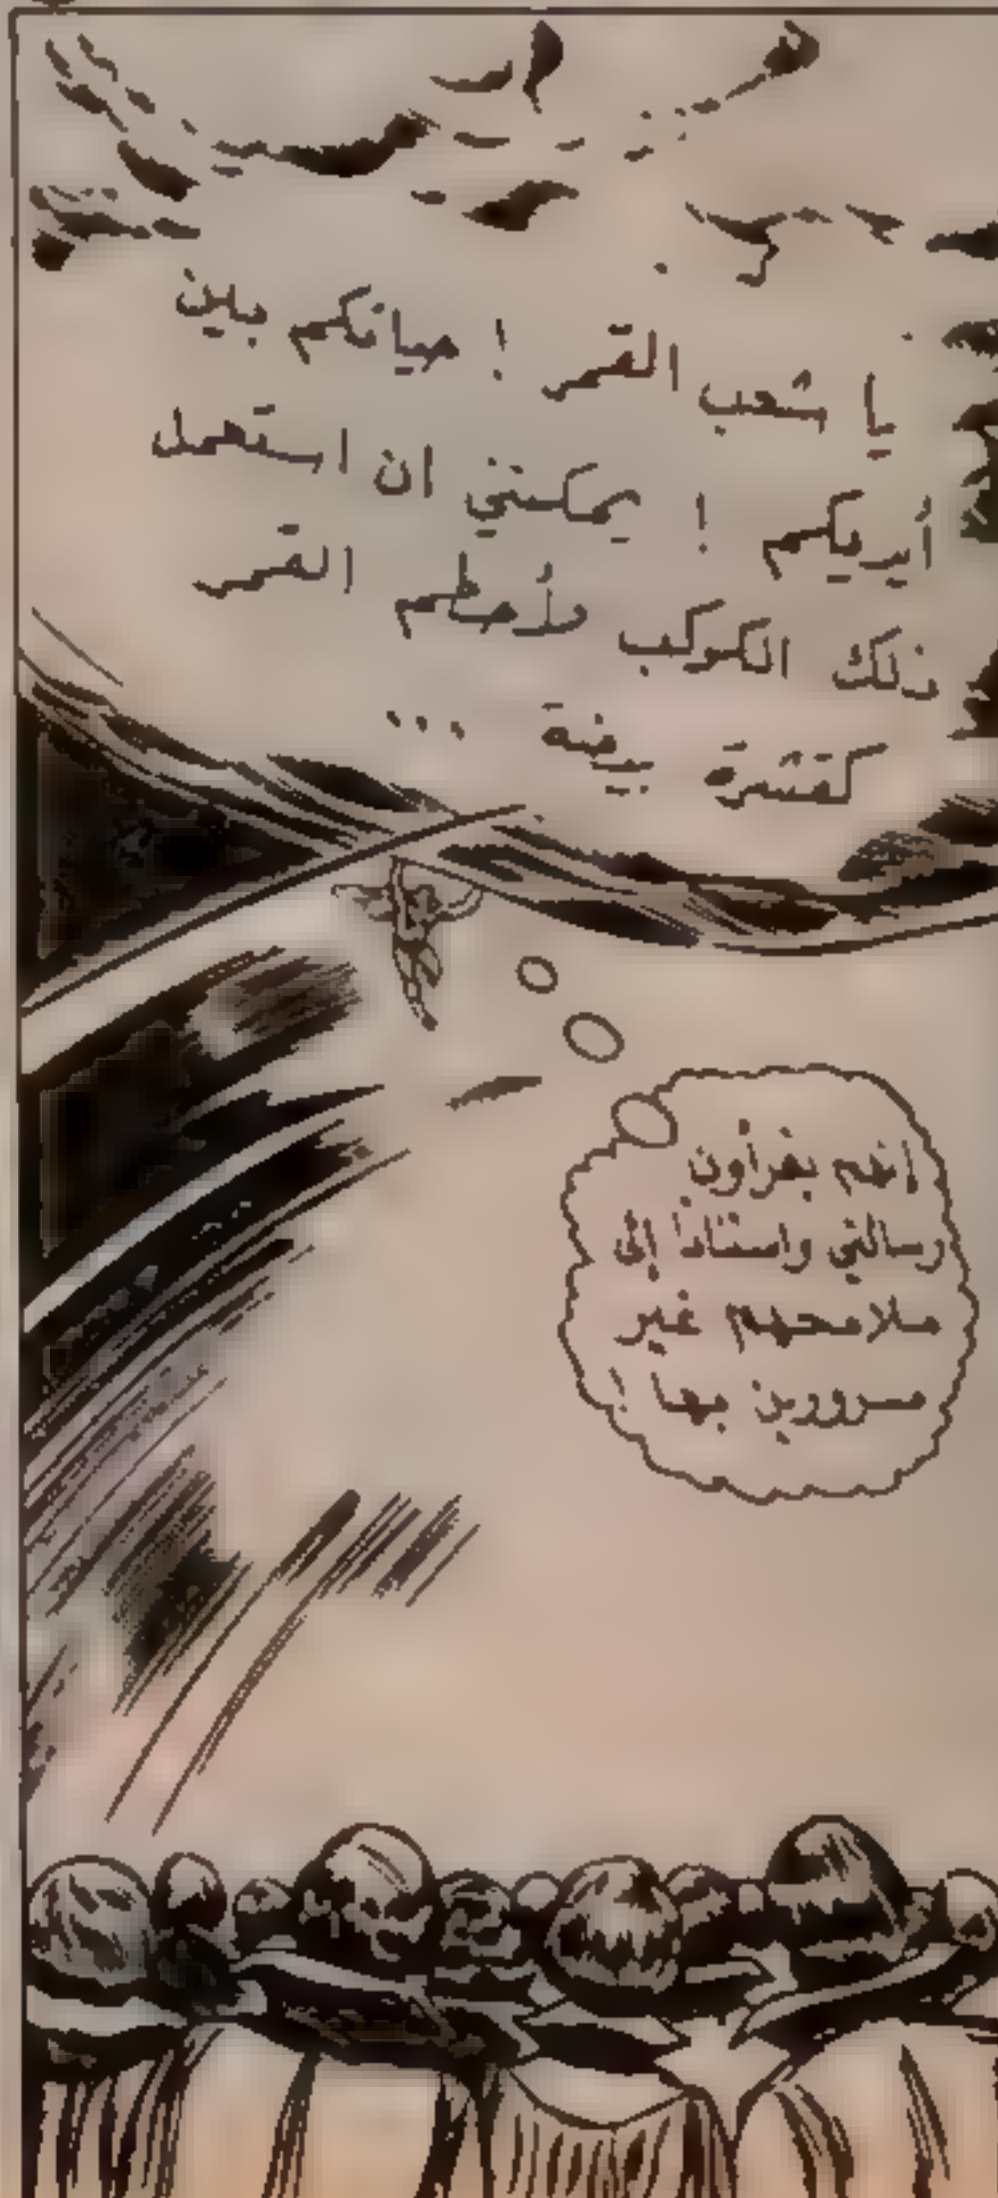 يا شعب القمر ! حياتكم بين
أيديكم ! يمكنني ان استعمل
ذلك الكوكب لأحطم القمر
كقشرة بيضة ...
انهم يقرأون
رسالتي واستنادا إلى
ملامحهم غير
مسرورين بها !